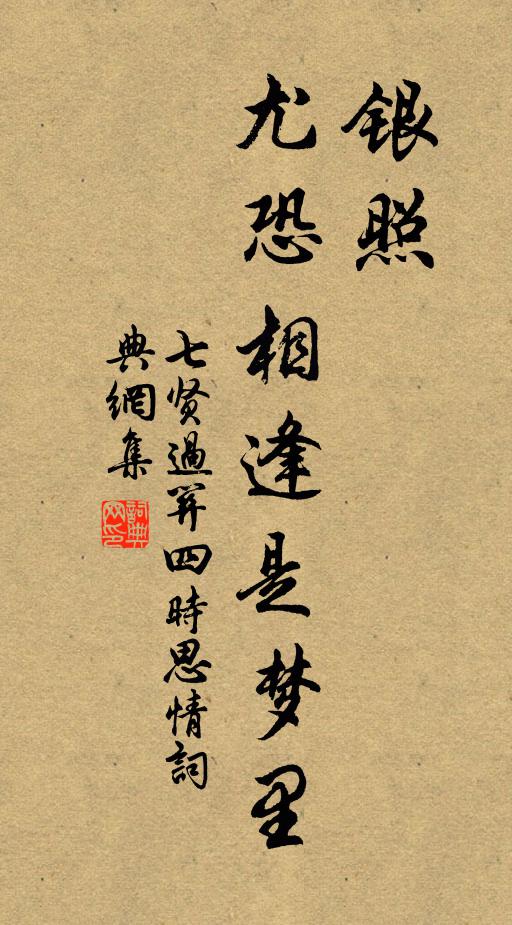 银照
尤恐相逢是梦里
七贤過関四時思情詞
典網集
詞典網印